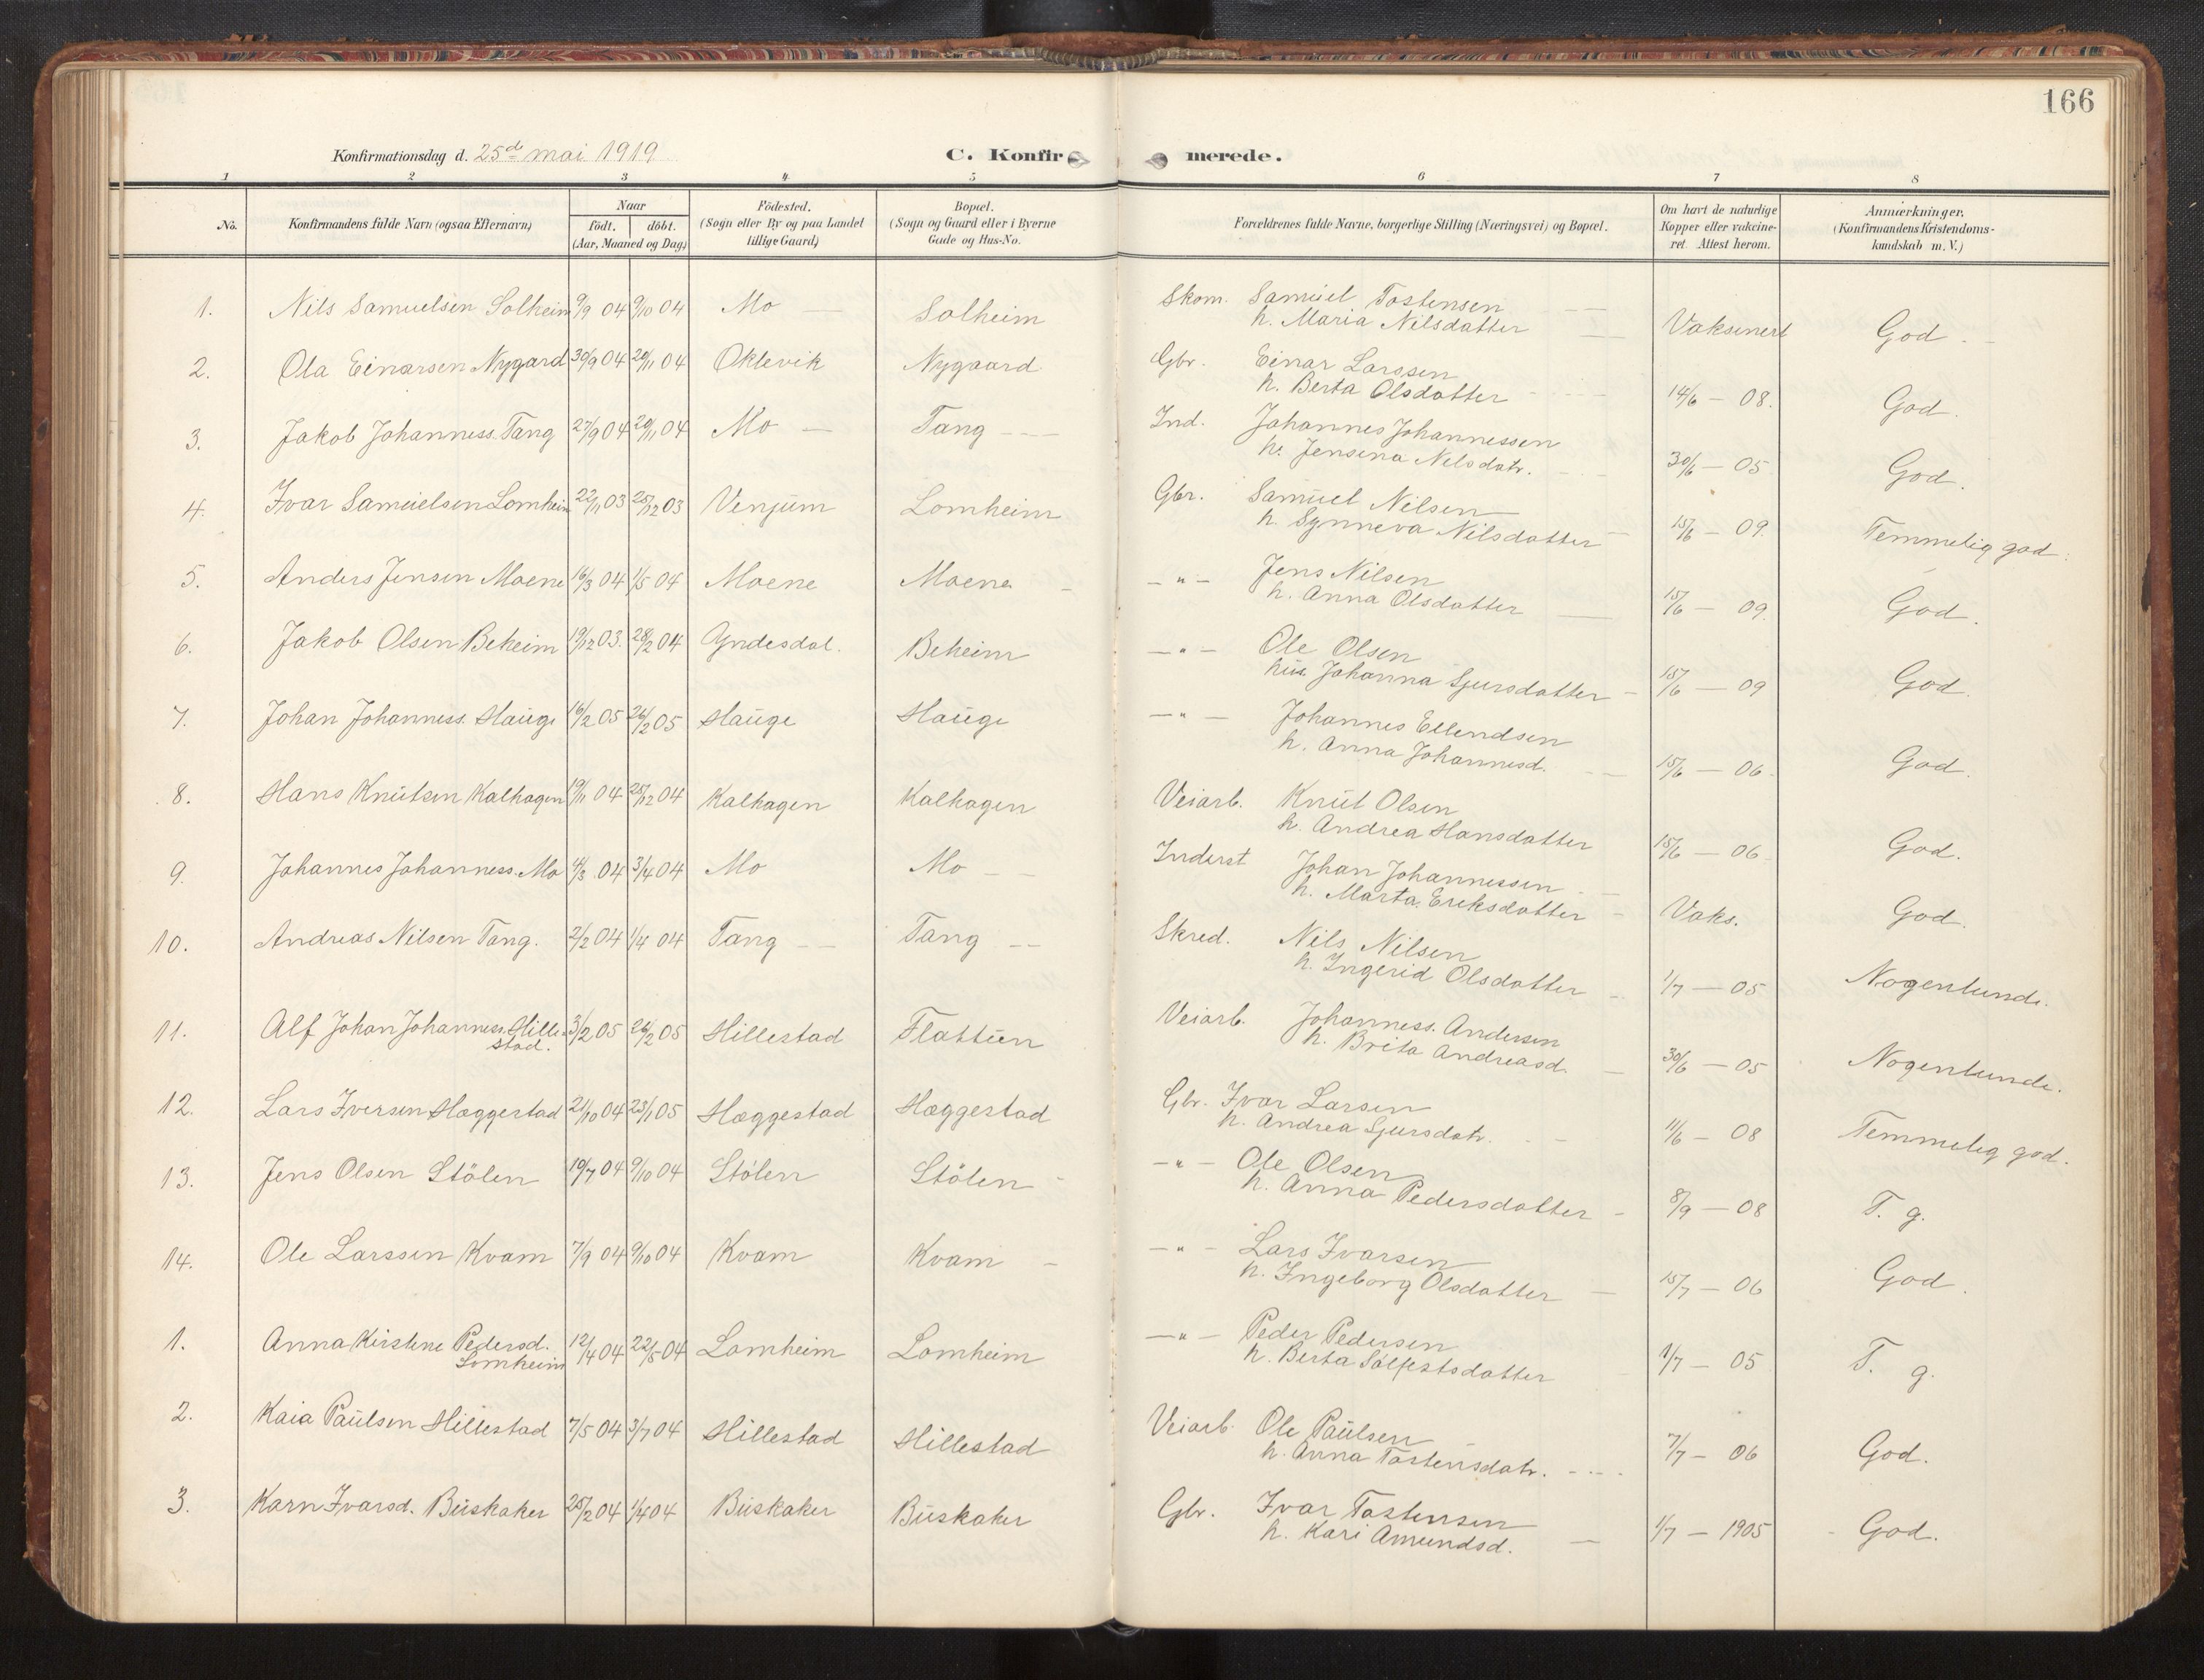 166
Konfirmationsdag d. 25de mai 1919
C. Konfirmerede.
1 2 3 4 5 6 7 8
No.
Konfirmandens fulde Navn (ogsaa Efternavn)
Naar
födt. döbt.
(Aar, Maaned og Dag)
Födested.
(Sogn eller By og paa Landet
tillige Gaard)
Bopæl.
(Sogn og Gaard eller i Byerne
Gade og Hus-No.
Forældrenes fulde Navne, borgerlige Stilling (Næringsvei) og Bopæl.
Om havt de naturlige
Kopper eller vakcine-
ret. Attest herom.
Anmærkninger.
(Konfirmandens Kristendoms-
kundskab m. V.)
1. Nils Samuelsen Solheim 9/9 04 9/10 04 Mo — Solheim Skom. Samuel Tostensen
h. Maria Nilsdatter — Vaksinert God.
2. Ola Einarsen Nygard 30/9 04 20/11 04 Oklevik Nygaard Gbr. Einar Larssen
h. Berta Olsdatter 14/6 — 08. God.
3. Jakob Johanness. Tang 27/9 04 20/11 04 Mo — Tang — Ind. Johannes Johannessen
h. Jensina Nilsdatr. 30/6 — 05 God.
4. Ivar Samuelsen Lomheim 22/11 03 25/12 03 Venjum Lomheim Gbr. Samuel Nilsen
h. Synneva Nilsdatter 15/6 — 09. Temmelig god.
5. Anders Jensen Moene 16/3 04 1/5 04 Moene Moene — " — Jens Nilsen
h. Anna Olsdatter — 15/6 — 09. God.
6. Jakob Olsen Beheim 19/12 03. 28/2 04 Yndesdal. Beheim — " — Ole Olsen
hus. Johanna Sjursdatter — 15/6 — 09 God.
7. Johan Johanness. Hauge 16/2 05 26/2 05 Hauge Hauge — " — Johannes Ellendsen
h. Anna Johannesd. 15/6 — 06. God.
8. Hans Knutsen Kalhagen 19/11 04 25/12 04 Kalhagen Kalhagen Veiarb. Knut Olsen
h. Andrea Hansdatter 15/6 — 06. God.
9. Johannes Johanness. Mo 4/3 04 3/4 04 Mo Mo — Inderst Johan Johannessen
h. Marta Eriksdatter — Vaks. God.
10. Andreas Nilsen Tang. 2/2 04 1/4 04 Tang — Tang — Skred. Nils Nilsen
h. Ingerid Olsdatter 1/7 — 05 Nogenlunde.
11. Alf Johan Johanness. Hille-
stad. 3/2 05 26/2 05 Hillestad Flattun Veiarb. Johanness. Andersen
h. Brita Andreasd. — 30/6 — 05 Nogenlunde.
12. Lars Iversen Hæggestad 21/10 04 23/1 05 Hæggestad Hæggestad Gbr. Ivar Larsen
h. Andrea Sjursdatr. 11/6 — 08 Temmelig god.
13. Jens Olsen Stölen 19/7 04 9/10 04 Stölen Stölen — " — Ole Olsen
h. Anna Pedersdatter — 8/9 — 08 T. g.
14. Ole Larssen Kvam 7/9 04 9/10 04 Kvam Kvam — — " — Lars Ivarsen
h. Ingeborg Olsdatter — 15/7 — 06 God.
1. Anna Kirstine Pedersd.
Lomheim 12/4 04 22/5 04 Lomheim Lomheim — " — Peder Pedersen
h. Berta Sølfestsdatter 1/7 — 05 T. g.
2. Kaia Paulsen Hillestad 7/5 04 3/7 04 Hillestad Hillestad Veiarb. Ole Paulsen
h. Anna Tostensdatr. 7/7 — 06 God.
3. Karn Ivarsd. Buskaker 25/2 04 1/4 04 Buskaker Buskaker Gbr. Ivar Tostensen
h. Kari Amundsd. — 1/7 — 1905 God.